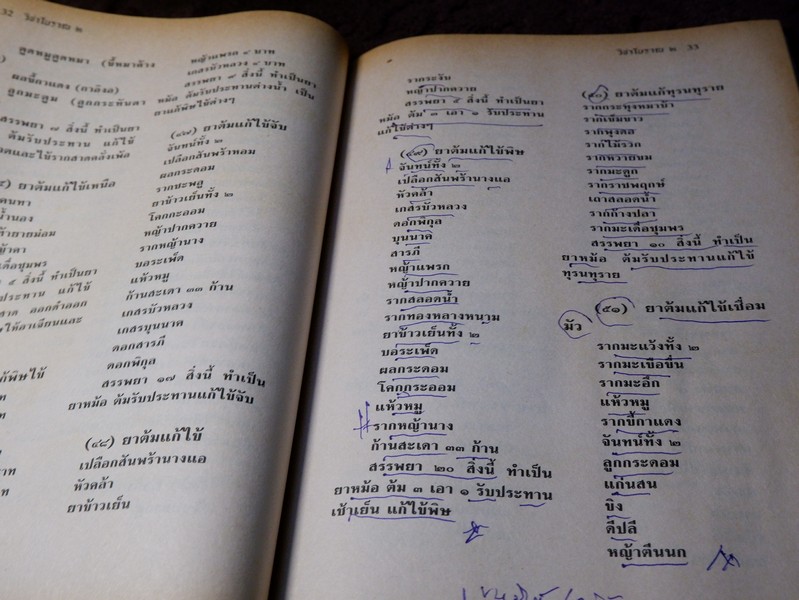 32 วิชาโบราณ ๒
กูดหมูกูดหมา (ขี้หมาค้าง
ผลขี้กาแดง (กาดิงเอ)
ลูกมะตูม (ลูกกระทันตา
สรรพยา ๗ สิ่งนี้ ทำเป็นยา
ต้มรับประทาน แก้ไข้
) ยาต้มแก้ไข้เหนือ
๙ สิ่งนี้ ทำเป็นยา
ประทาน แก้ไข้
หญ้าแพรก ๔ บาท
เกสรบัวหลวง ๔ บาท
สรรพยา ๗ สิ่งนี้ ทำเป็นยา
หม้อ ต้มรับประทานต่างน้ำ เป็น
ยาแก้พิษไข้ต่างๆ
(๔๗) ยาต้มแก้ไข้จับ
จันทน์ทั้ง ๒
เปลือกสันพร้าหอม
ผลกระดอม
รากชะพลู
ยาข้าวเย็นทั้ง ๒
โคกกะออม
หญ้าปากควาย
รากหญ้านาง
บอระเพ็ด
แห้วหมู
ก้านสะเดา ๓๓ ก้าน
เกสรบัวหลวง
เกสรบุนนาค
ดอกสารภี
ดอกพิกุล
สรรพยา ๑๗ สิ่งนี้ ทำเป็น
ยาหม้อ ต้มรับประทานแก้ไข้จับ
(๔๘) ยาต้มแก้ไข้
เปลือกสันพร้านางแอ
หัวคล้า
ยาข้าวเย็น
วิชาโบราณ ๒ 33
รากระจับ
หญ้าปากควาย
สรรพยา ๕ สิ่งนี้ ทำเป็นยา
หม้อ ต้ม ๓ เอา ๑ รับประทาน
แก้ไข้ต่างๆ
(๔๙) ยาต้มแก้ไข้พิษ
จันทน์ทั้ง ๒
เปลือกสันพร้านางแอ
หัวคล้า
เกสรบัวหลวง
ดอกพิกุล
บุนนาค
สารภี
หญ้าแพรก
หญ้าปากควาย
รากสลอดน้ำ
รากทองหลางหนาม
ยาข้าวเย็นทั้ง ๒
บอระเพ็ด
ผลกระดอม
โคกกระออม
แห้วหมู
รากหญ้านาง
ก้านสะเดา ๓๓ ก้าน
สรรพยา ๒๐ สิ่งนี้ ทำเป็น
ยาหม้อ ต้ม ๓ เอา ๑ รับประทาน
เช้าเย็น แก้ไข้พิษ
(๕๐) ยาต้มแก้ทุรนทุราย
รากกระพุงหมาบ้า
รากเข็มขาว
รากพุงดอ
รากไม้รวก
รากหวายขม
รากมะตูก
รากราชพฤกษ์
เถาสลอดน้ำ
รากก้างปลา
รากมะเดื่อชุมพร
สรรพยา ๑๐ สิ่งนี้ ทำเป็น
ยาหม้อ ต้มรับประทานแก้ไข้
ทุรนทุราย
(๕๑) ยาต้มแก้ไข้เชื่อม
มัว
รากมะแว้งทั้ง ๒
รากมะเขือขื่น
รากมะอึก
แห้วหมู
รากขี้กาแดง
จันทน์ทั้ง ๒
ลูกกระดอม
แก่นสน
ขิง
ดีปลี
หญ้าตีนนก